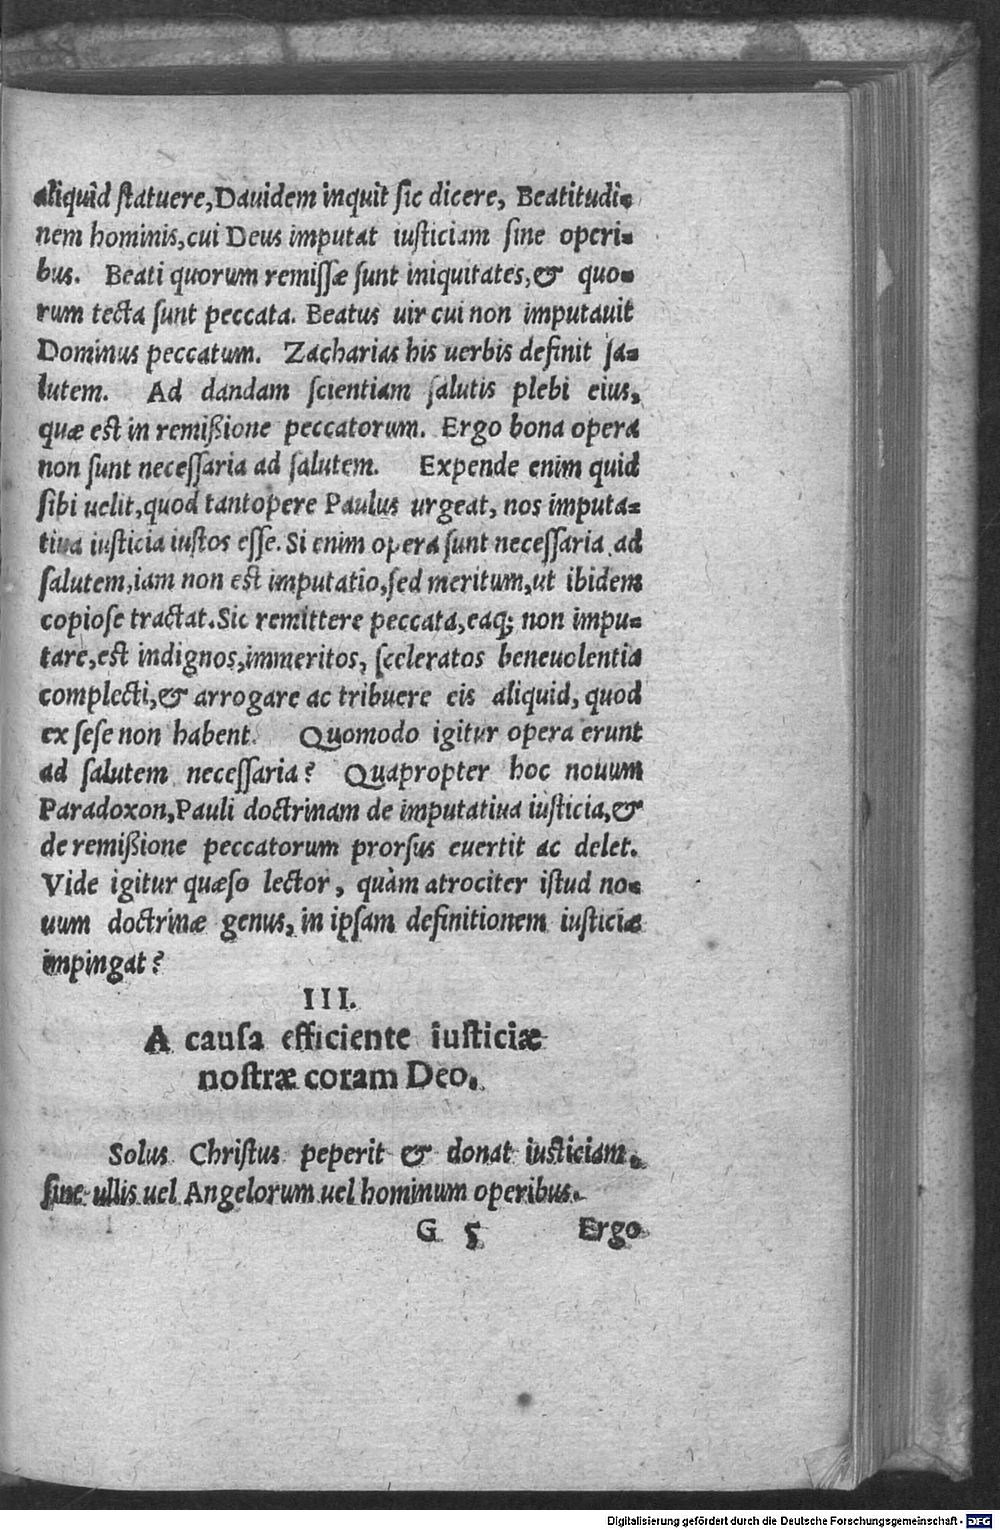 aliquid ſtatuere, Dauidem inquit ſic dicere, Beatitudi⸗
nem hominis, cui Deus imputat iuſticiam ſine operi⸗
bus. Beati quorum remiſſæ ſunt iniquitates, & quo⸗
rum tecta ſunt peccata. Beatus uir cui non imputauit
Dominus peccatum. Zacharias his uerbis definit ſa⸗
lutem. Ad dandam ſcientiam ſalutis plebi eius,
quæ eſt in remißione peccatorum. Ergo bona opera
non ſunt neceſſaria ad ſalutem. Expende enim quid
ſibi uelit, quod tantopere Paulus urgeat, nos imputa⸗
tiua iuſticia iuſtos eſſe. Si enim opera ſunt neceſſaria ad
ſalutem, iam non eſt imputatio, ſed meritum, ut ibidem
copioſe tractat. Sic remittere peccata, eaq; non impu⸗
tare, eſt indignos, immeritos, ſceleratos beneuolentia
complecti, & arrogare ac tribuere eis aliquid, quod
ex ſeſe non habent. Quomodo igitur opera erunt
ad ſalutem neceſſaria? Quapropter hoc nouum
Paradoxon, Pauli doctrinam de imputatiua iuſticia, &
de remißione peccatorum prorſus euertit ac delet.
Vide igitur quæſo lector, quàm atrociter iſtud no⸗
uum doctrinæ genus, in ipſam definitionem iuſticiæ
impingat?
III.
A cauſa efficiente iuſticiæ
noſtræ coram Deo.
Solus Chriſtus peperit & donat iuſticiam,
ſine ullis uel Angelorum uel hominum operibus.
G 5 Ergo
Digitalisierung gefördert durch die Deutsche Forschungsgemeinschaft - DFG